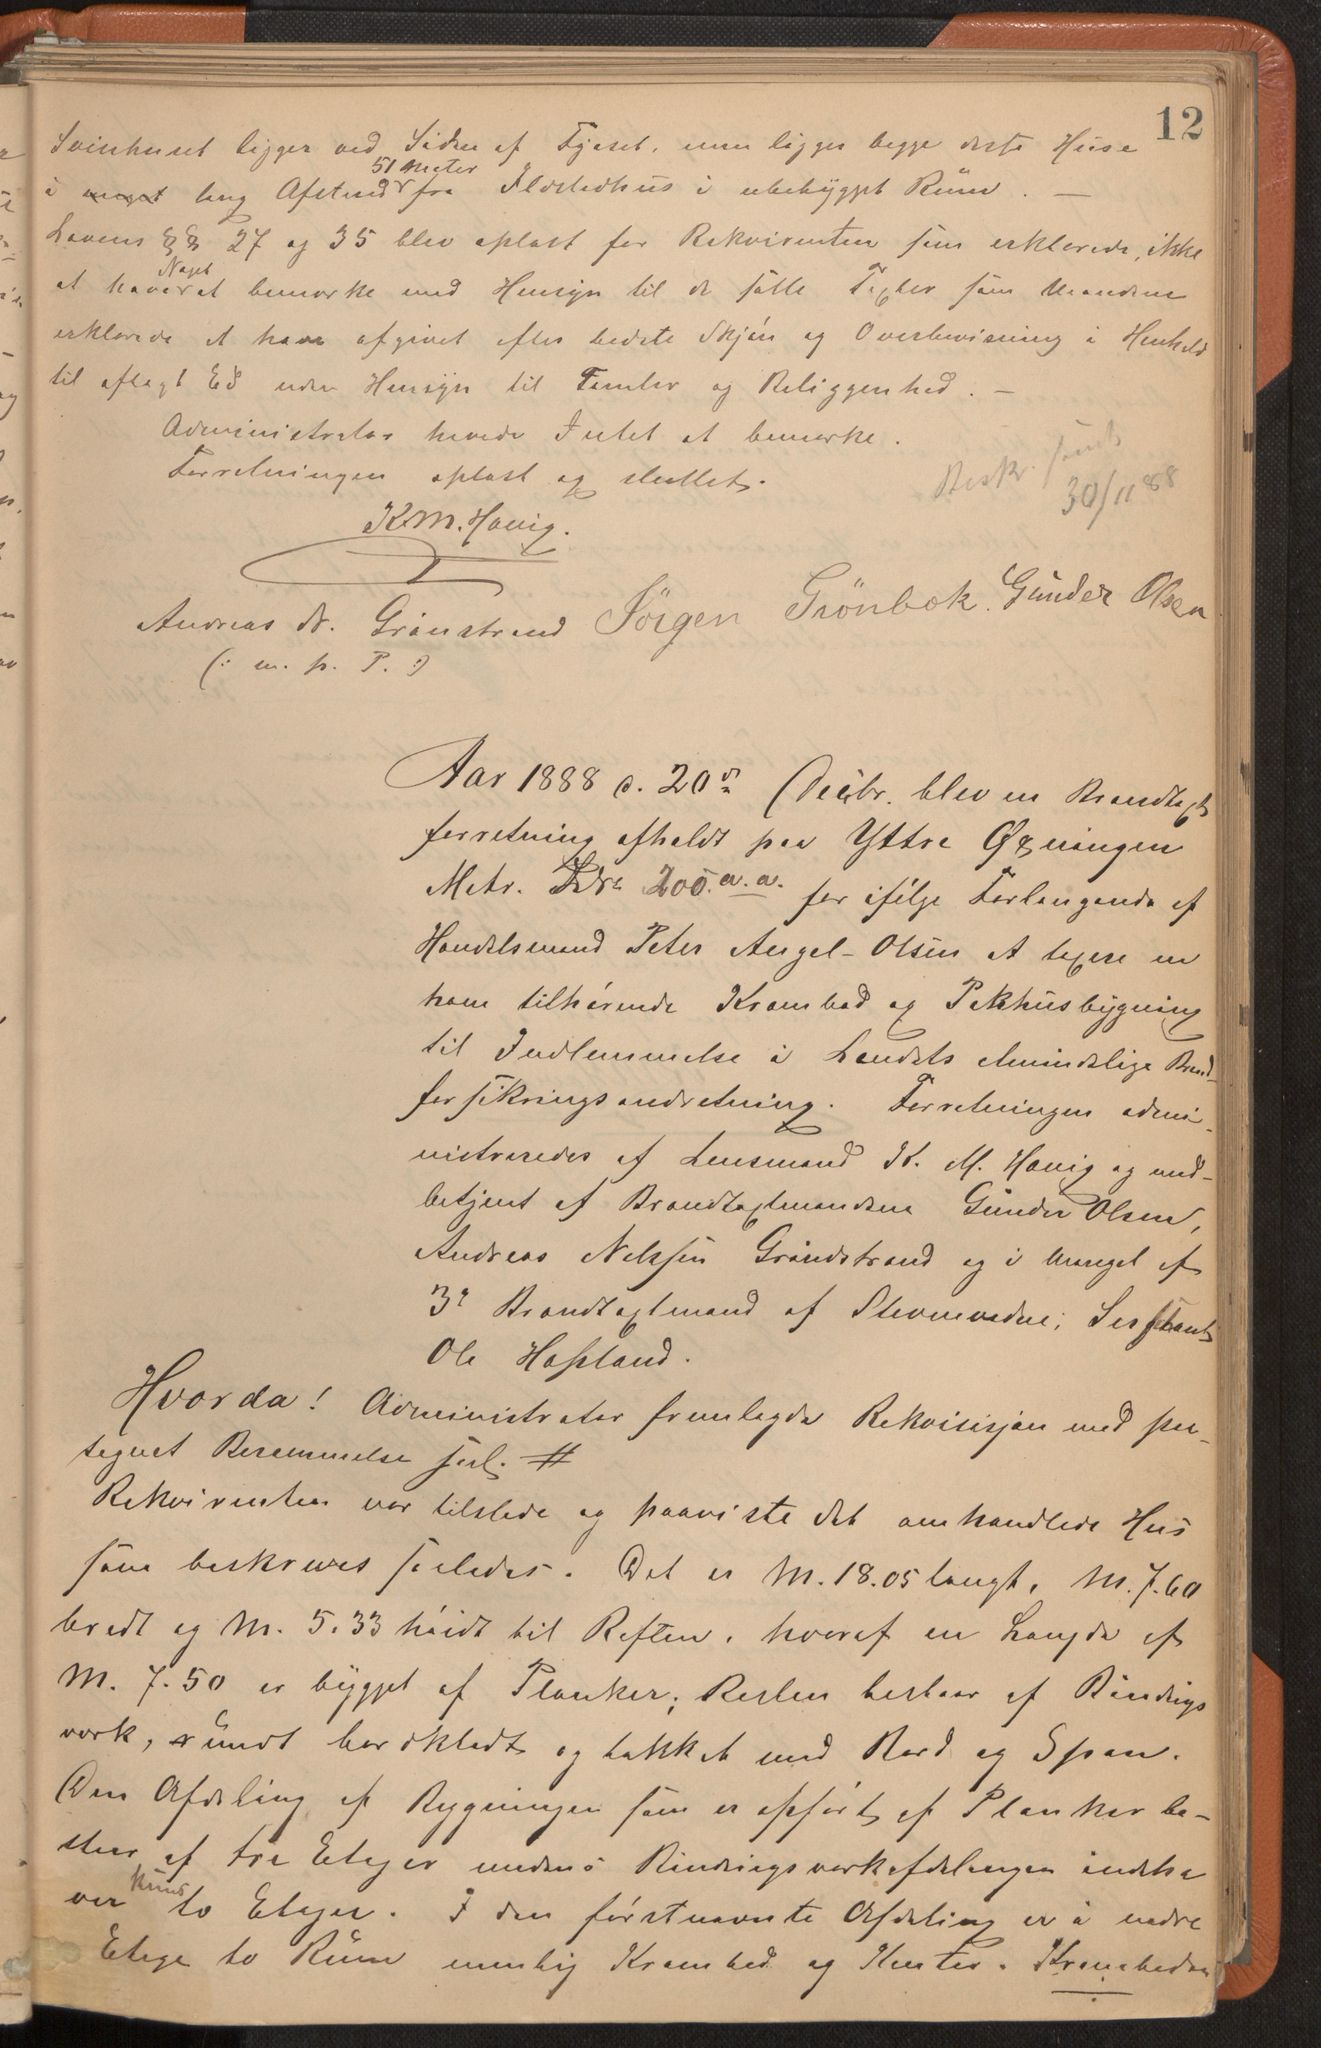 12
Svinhuset ligger ved Siden af Fjøset, men ligger begge disse Huse
i meget lang Afstand 51 Meter fra Ildstedhus i ubebygget Rum. —
Lovens §§ 27 og 35 blev oplæst for Rekvirenten som erklærede, ikke
at have Noget at bemærke med Hensyn til de satte Taxter som Mændene
erklærede at have afgivet efter bedste Skjøn og Overbevisning i Henhold
til aflagt Ed uden Hensyn til Tomter og Beliggenhed. —
Administrator havde Intet at bemærke.
Forretningen oplæst og sluttet.
Beskr. sendt
30/11 88
K. M. Havig.
Andreas N. Grönstrand Jörgen Grönbæk. Gunder Olsen
(: m. p. P. :)
Aar 1888 d. 20de Decbr. blev en Brandtaxt
forretning afholdt paa Yttre Øxningen
Matr. No 200. a. a. for ifølge Forlangende af
Handelsmand Peter Angel-Olsen at taxere en
ham tilhørende Krambod og Pakhusbygning
til Indlemmelse i Landets almindelige Brand-
forsikringsindretning. Forretningen admi-
nistreredes af Lensmand K. M. Havig og med-
betjent af Brandtaxtmændene Gunder Olsen,
Andreas Nilssen Grønstrand og i Mangel af
3de Brandtaxtmand af Stevnevidne, Sersjant
Ole Hafland.
Hvorda! Administrator fremlagde Rekvisisjon med paa-
tegnet Berammelse sal. #
Rekvirenten var tilstede og paaviste det omhandlede Hus
som beskrives saaledes. Det er M. 18.05 langt, M. 7.60
bredt og M. 5.33 høidt til Røften, hvoraf en Længde af
M. 7.50 er bygget af Planker; Resten bestaar af Bindings
værk, rundt bordklædt og tækket med Bord og Spon.
Den Afdeling af Bygningen som er opført af Planker be-
staar af tre Etager medens Bindingsværkafdelingen indeha
ver kuns to Etager. I den førstnævnte Afdeling er i nedre
Etage to Rum nemlig Krambod og Kontor. Kramboden